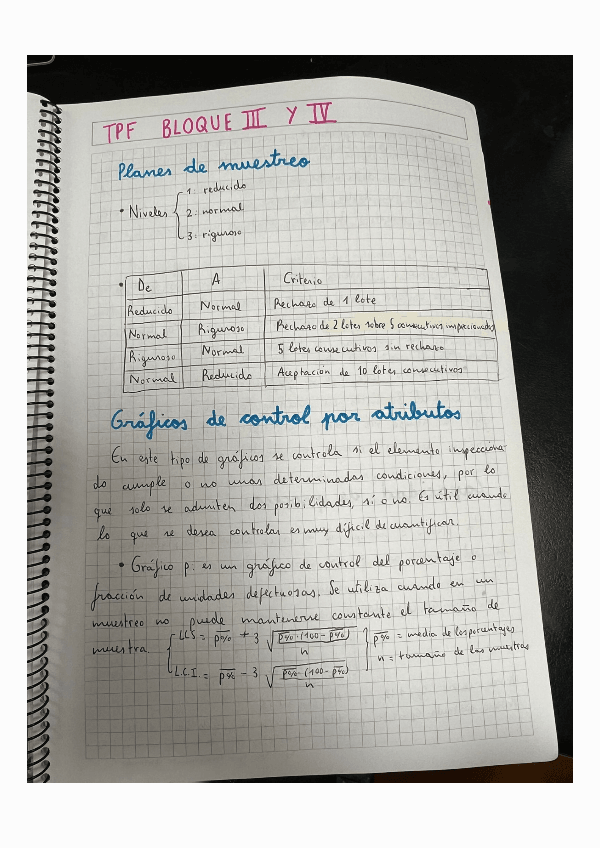 TPF BLOQUE III Y IV
Planes de muestreo
• Niveles
1: reducido
2: normal
3: riguroso
• De A Criterio
Reducido Normal Rechazo de 1 lote
Normal Riguroso Rechazo de 2 lotes sobre 5 consecutivos inspeccionados
Riguroso Normal 5 lotes consecutivos sin rechazo
Normal Reducido Aceptación de 10 lotes consecutivos
Gráficos de control por atributos
En este tipo de gráficos se controla si el elemento inspecciona-
do cumple o no unas determinadas condiciones, por lo
que solo se admiten dos posibilidades, si o no. Es útil cuando
lo que se desea controlar es muy difícil de cuantificar.
• Gráfico p: es un gráfico de control del porcentaje o
fracción de unidades defectuosas. Se utiliza cuando en un
muestreo no puede mantenerse constante el tamaño de
muestra.
LCS = p̅%̅ + 3 √(p̅%̅·(100-p̅%̅)/n)
L.C.I. = p̅%̅ - 3 √(p̅%̅·(100-p̅%̅)/n)
p̅%̅ = media de los porcentajes
n = tamaño de las muestras